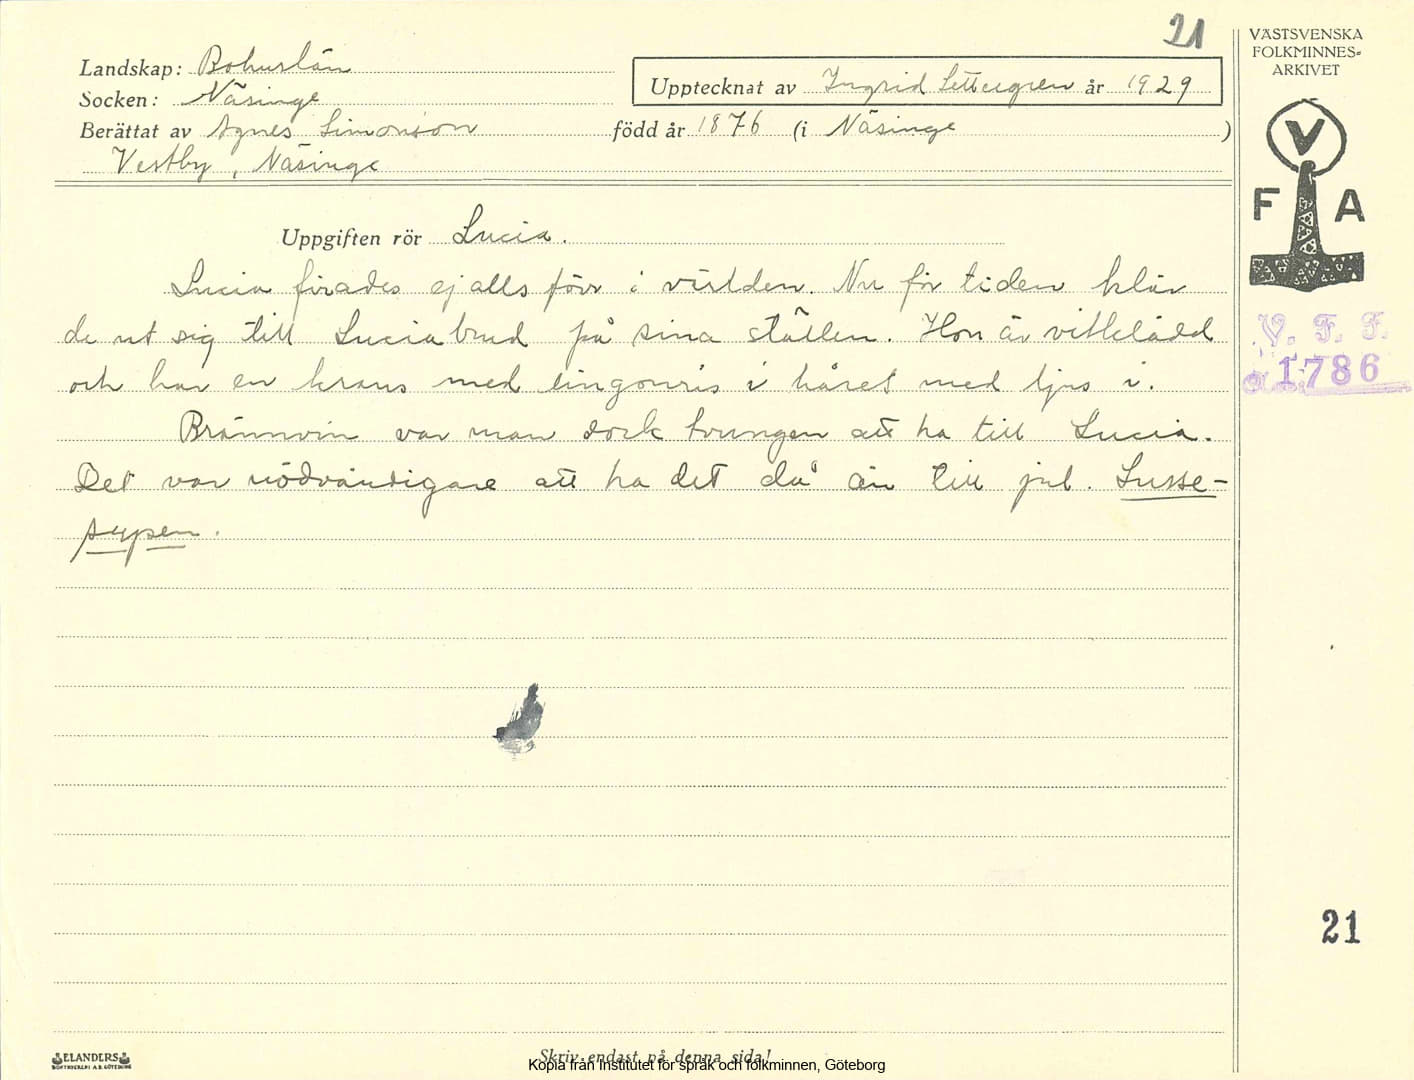 21
VÄSTSVENSKA
FOLKMINNES-
ARKIVET
Landskap: Bohuslän
Upptecknat av Ingrid Settergren år 1929
Socken: Näsinge
Berättat av Agnes Simonson född år 1876 (i Näsinge )
Vestby, Näsinge
V
F A
Uppgiften rör Lucia.
Lucia firades ej alls förr i världen. Nu för tiden klär
de ut sig till Luciabrud på sina ställen. Hon är vitklädd
och har en krans med lingonris i håret med ljus i.
V. F. F.
1786
Brännvin var man dock tvungen att ha till Lucia.
Det var nödvändigare att ha det då än till jul. Lusse-
supen.
21
ELANDERS
BOKTRYCKERI A.B. GÖTEBORG
Skriv endast på denna sida!
Kopia från Institutet för språk och folkminnen, Göteborg